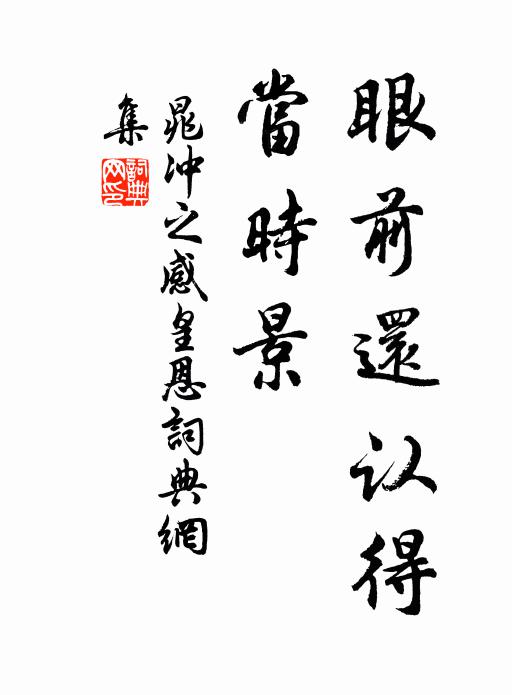 眼前還认得
當時景
晁冲之感皇恩詞典網
集
詞典網印